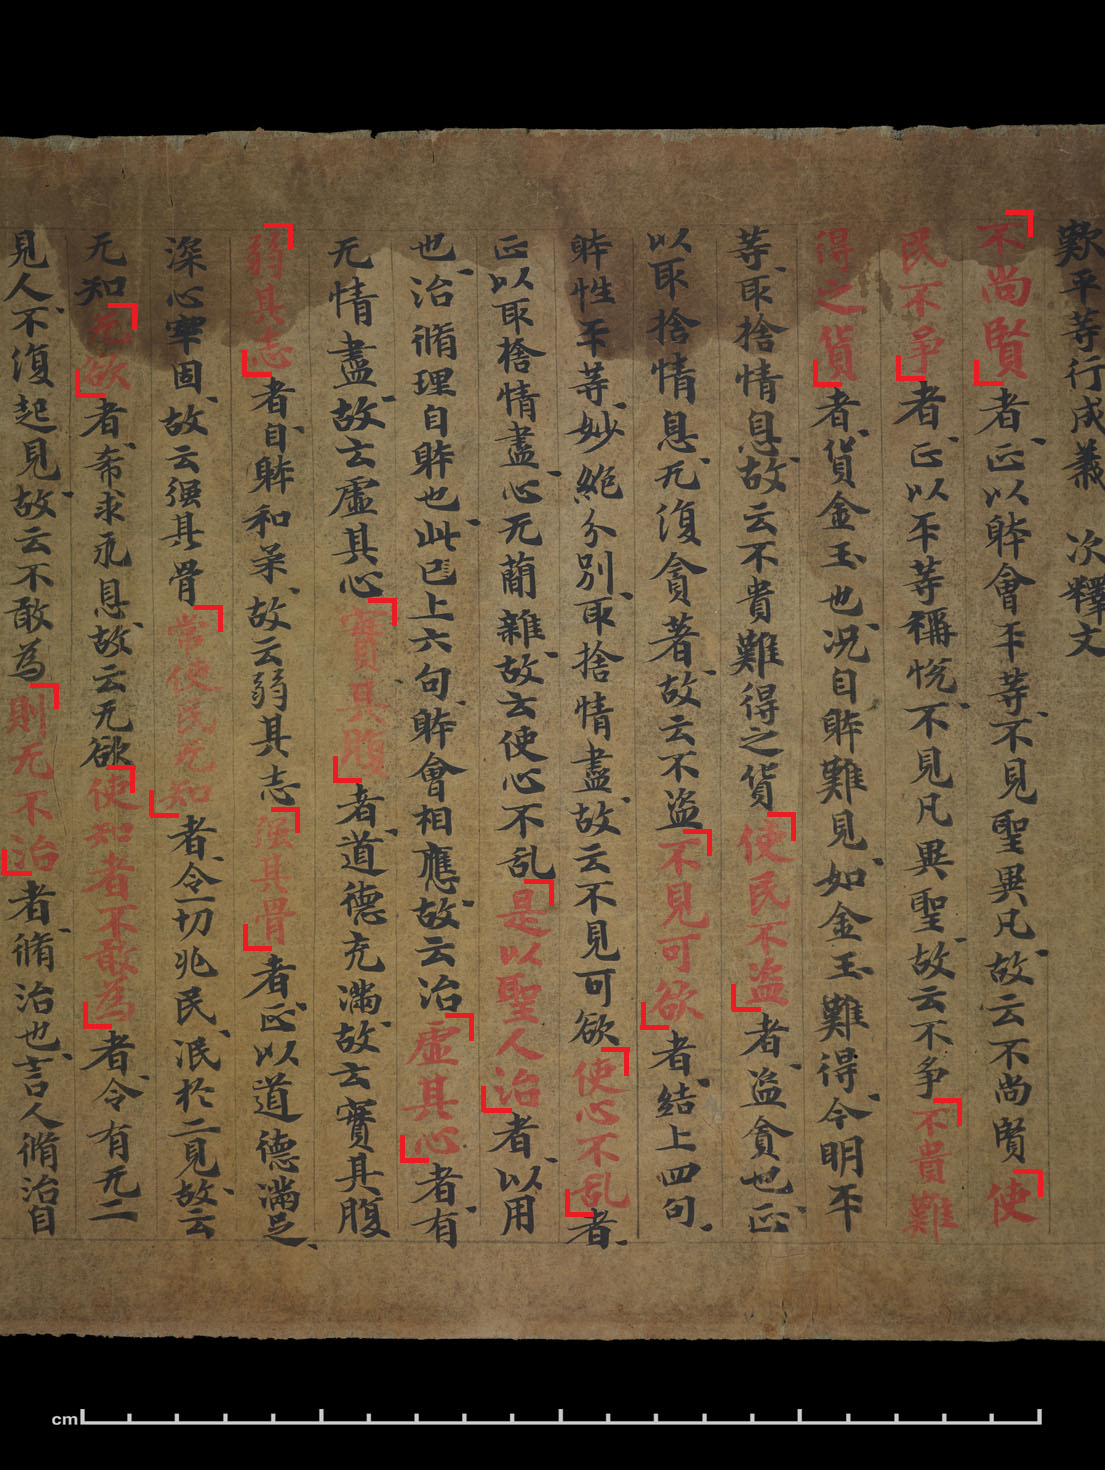 歎平等行成義　次釋文
不尚賢者正以躰會平等不見聖異凡故云不尚賢使
民不争者正以平等稱悅不見凡異聖故云不争不貴難
得之貨者貨金玉也況自躰難見如金玉難得今明平
等取捨情息故云不貴難得之貨使民不盜者盜貪也正
以取捨情息无復貪著故云不盜不見可欲者結上四句
躰性平等妙絕分別取捨情盡故云不見可欲使心不乱者
正以取捨情盡心无蕳雜故云使心不乱是以聖人治者以用
也治脩理自躰也此已上六句躰會相應故云治虛其心者有
无情盡故云虛其心實其腹者道德充滿故云實其腹
弱其志者自躰和柔故云弱其志强其骨者正以道德滿足
深心牢固故云强其骨常使民无知者令一切兆民泯於二見故云
无知无欲者希求永息故云无欲使知者不敢為者令有无二
見人不復起見故云不敢為則无不治者脩治也言人脩治自
cm